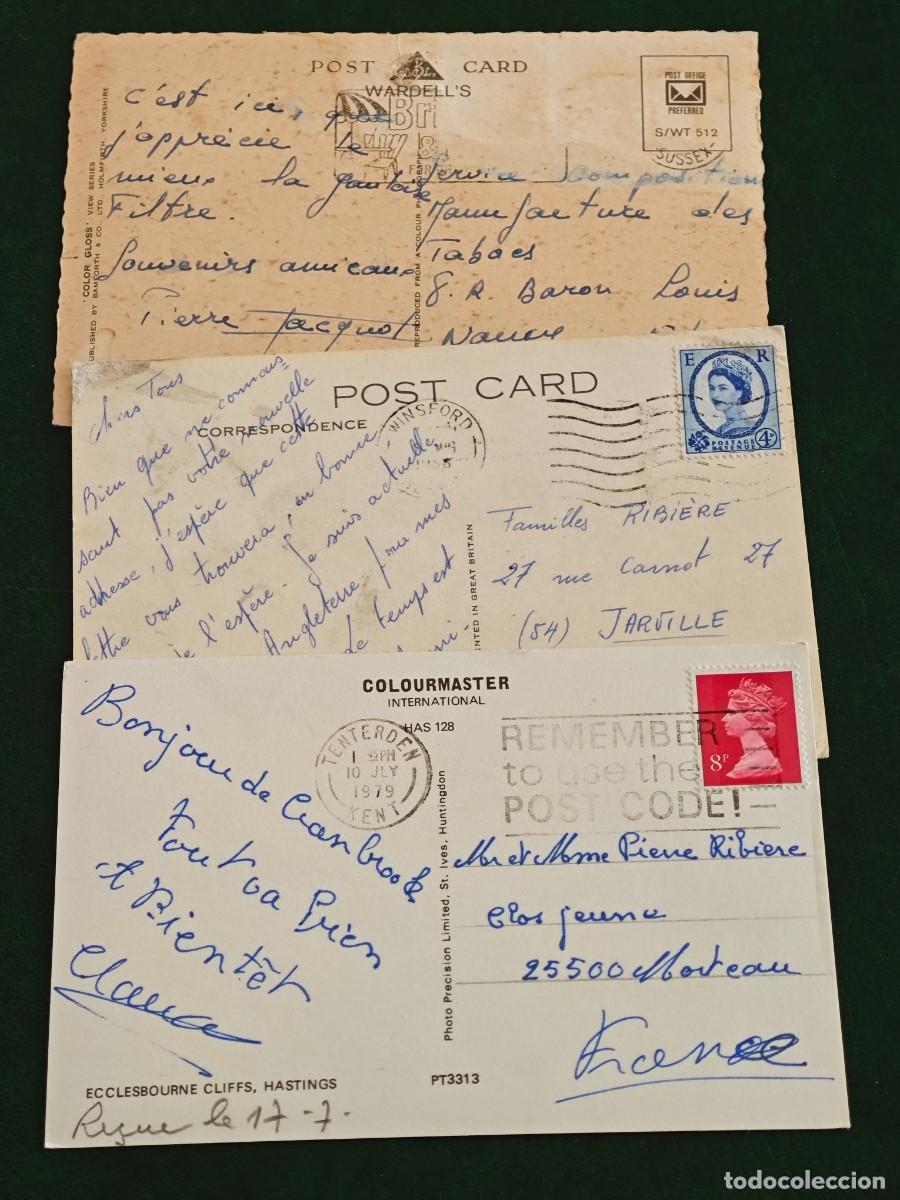 POST CARD
WARDELL'S
Bri
POST OFFICE
PREFERRED
S/WT 512
SUSSEX
'COLOR GLOSS' VIEW SERIES
PUBLISHED BY BAMFORTH & CO., LTD. HOLMFIRTH, YORKSHIRE
REPRODUCED FROM A COLOUR PHOTOGRAPH
c'est ici, que
j'apprécie le
mieux la gauloise
Filtre.
Souvenirs amicaux
Pierre Jacquot
Service Composition
Manufacture des
Tabacs
8. R. Baron Louis
Nancy
POST CARD
CORRESPONDENCE
WINSFORD
E R
POSTAGE
REVENUE
4D
PRINTED IN GREAT BRITAIN
Chers Tous
Bien que ne connais-
sant pas votre nouvelle
adresse, j'espère que cette
lettre vous trouvera, en bonne
je l'espère. Je suis actuelle
Angleterre pour mes
le temps est
Familles RIBIÈRE
27 rue Carnot 27
(54) JARVILLE
COLOURMASTER
INTERNATIONAL
HAS 128
TENTERDEN
1 45PM
10 JLY
1979
KENT
REMEMBER
to use the
POST CODE!
8P
Bonjour de Cranbrook
Tout va bien
A Bientôt
Photo Precision Limited, St. Ives, Huntingdon
Mr et Mme Pierre Ribiere
Clos jeune
25500 Morteau
France
ECCLESBOURNE CLIFFS, HASTINGS
PT3313
Reçue le 17-7-
todocoleccion